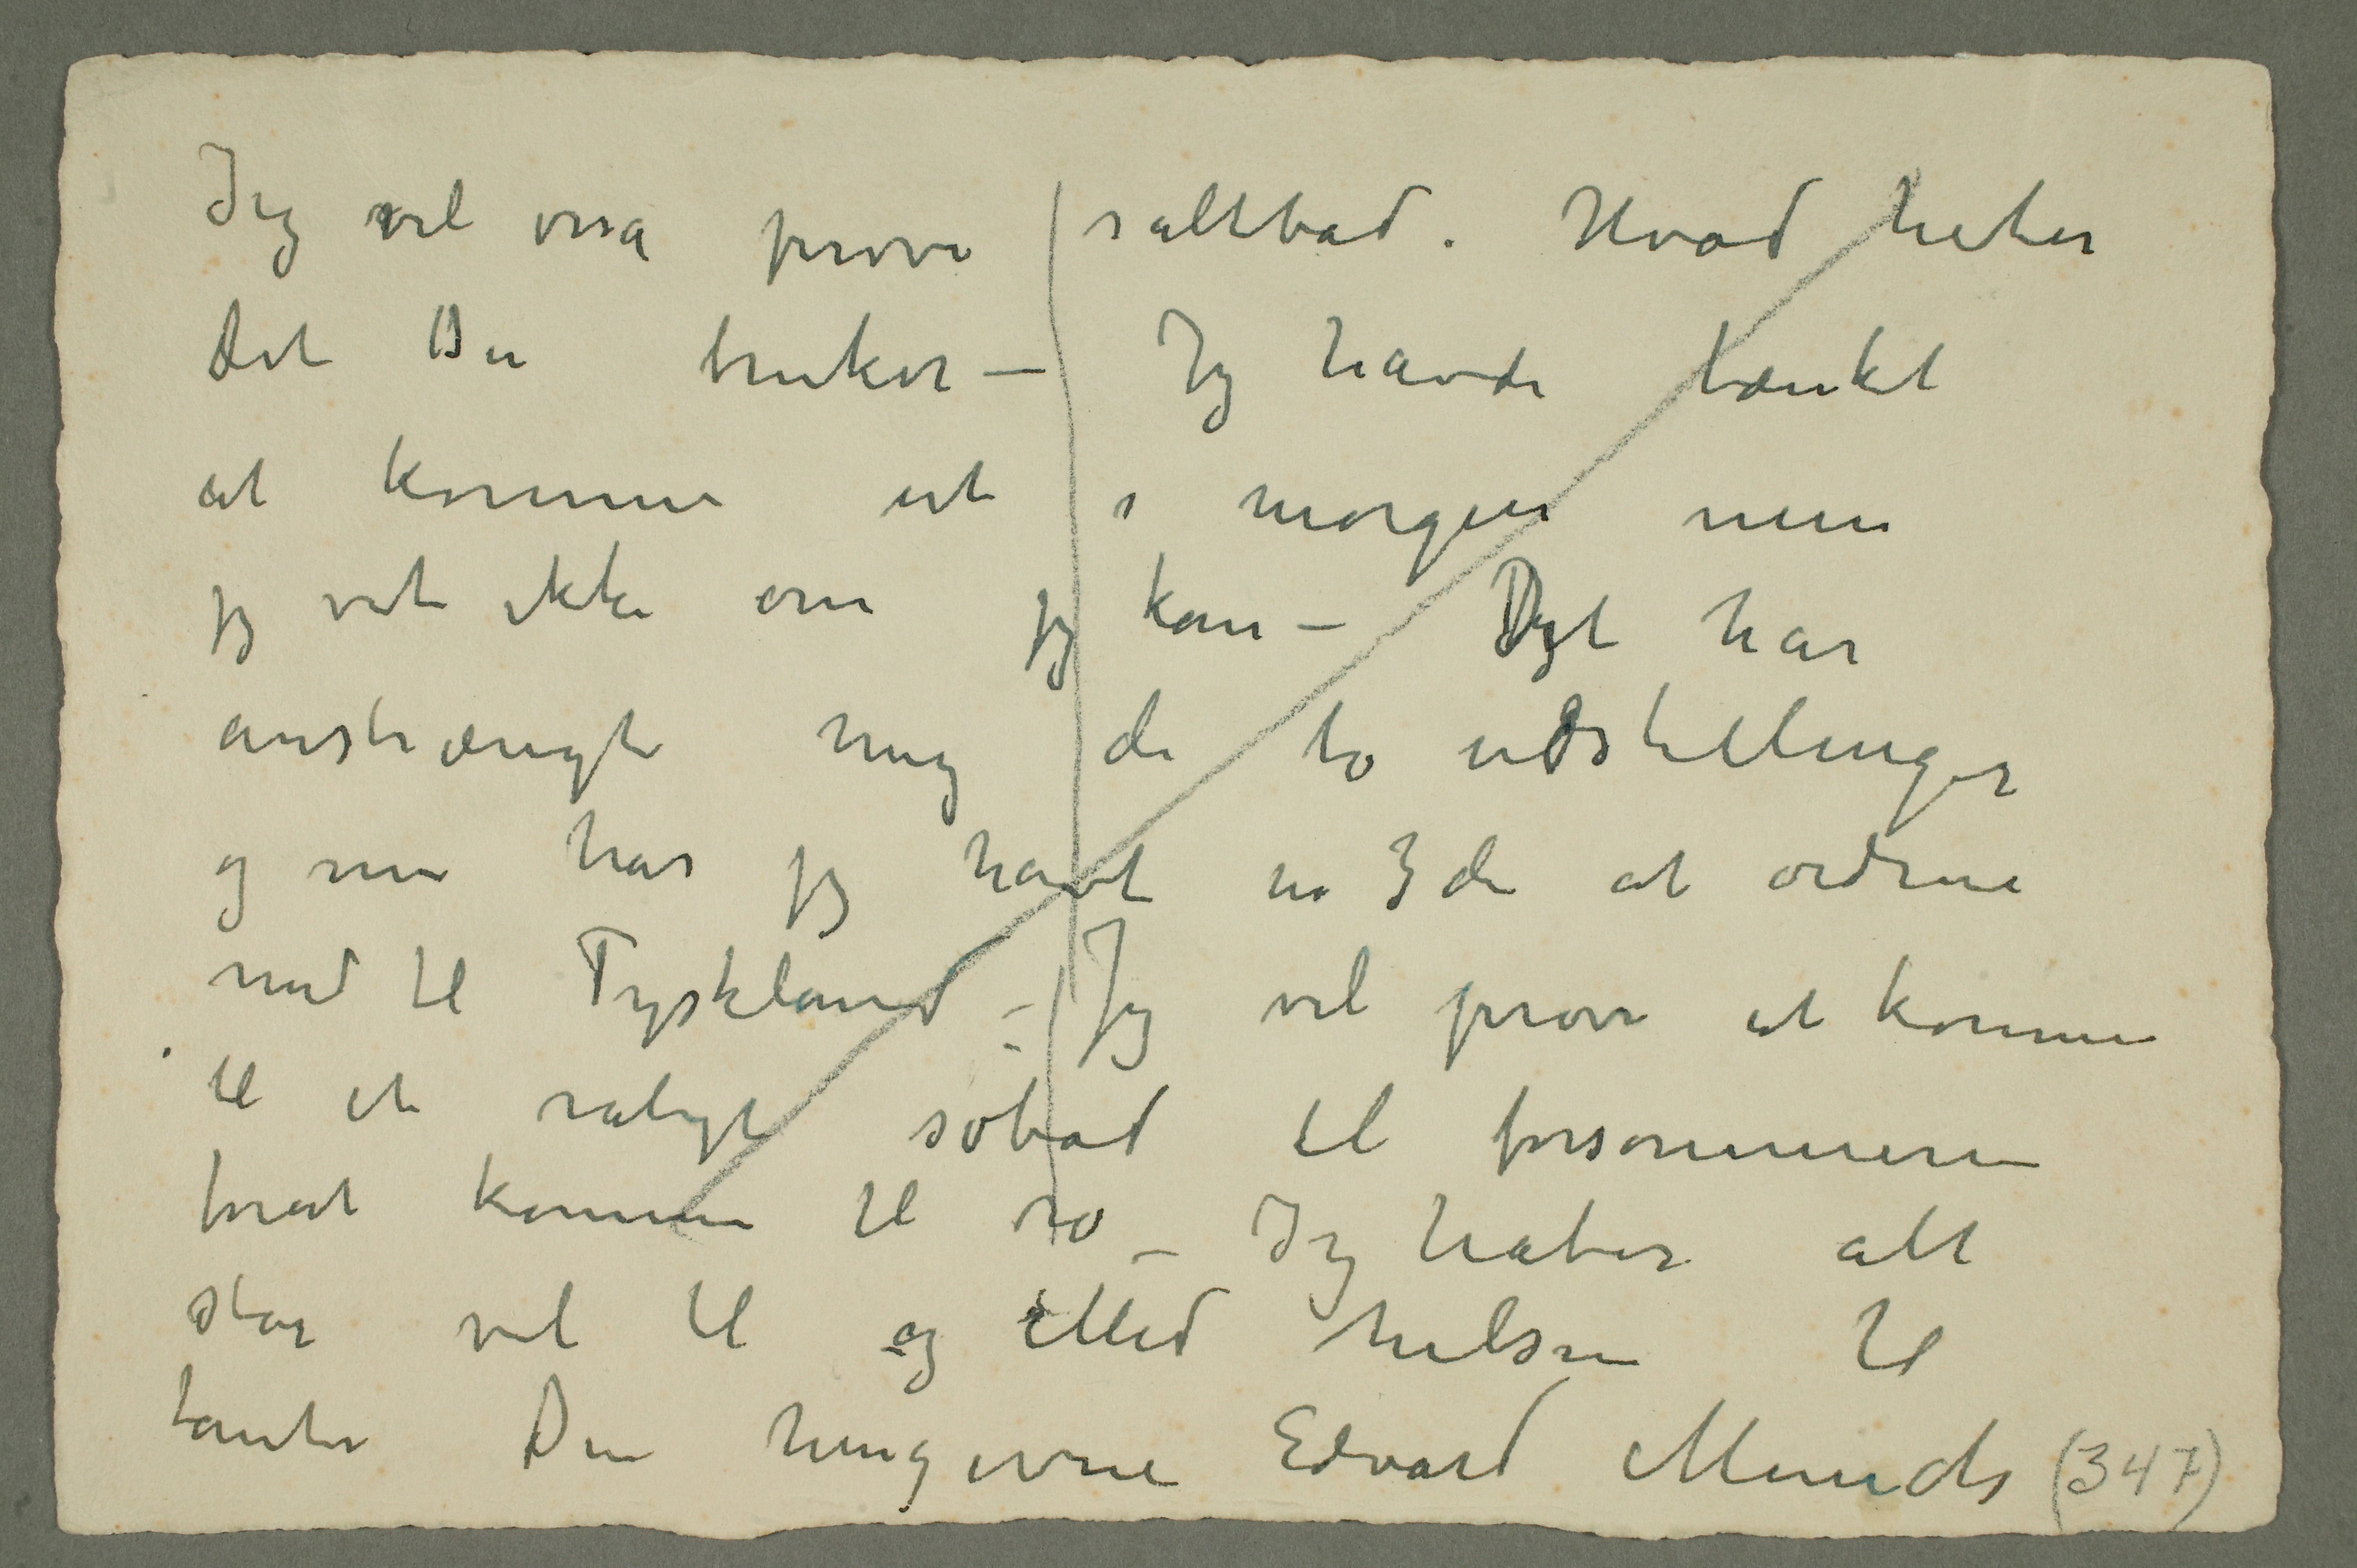 Jeg vil osså prøve saltbad. Hvad heter
det Du bruker – Jeg havde tænkt
at komme ut i morgen men
jeg vet ikke om jeg kan – Det har
anstrængt mig de to udstillinger
og nu har jeg havt en 3die at ordne
ned til Tyskland – Jeg vil prøve at komme
til et roligt søbad til forsommeren
forat komme til ro – Jeg håber alt
står vel til og Med hilsen til
tante Din hengivne Edvard Munch (347)